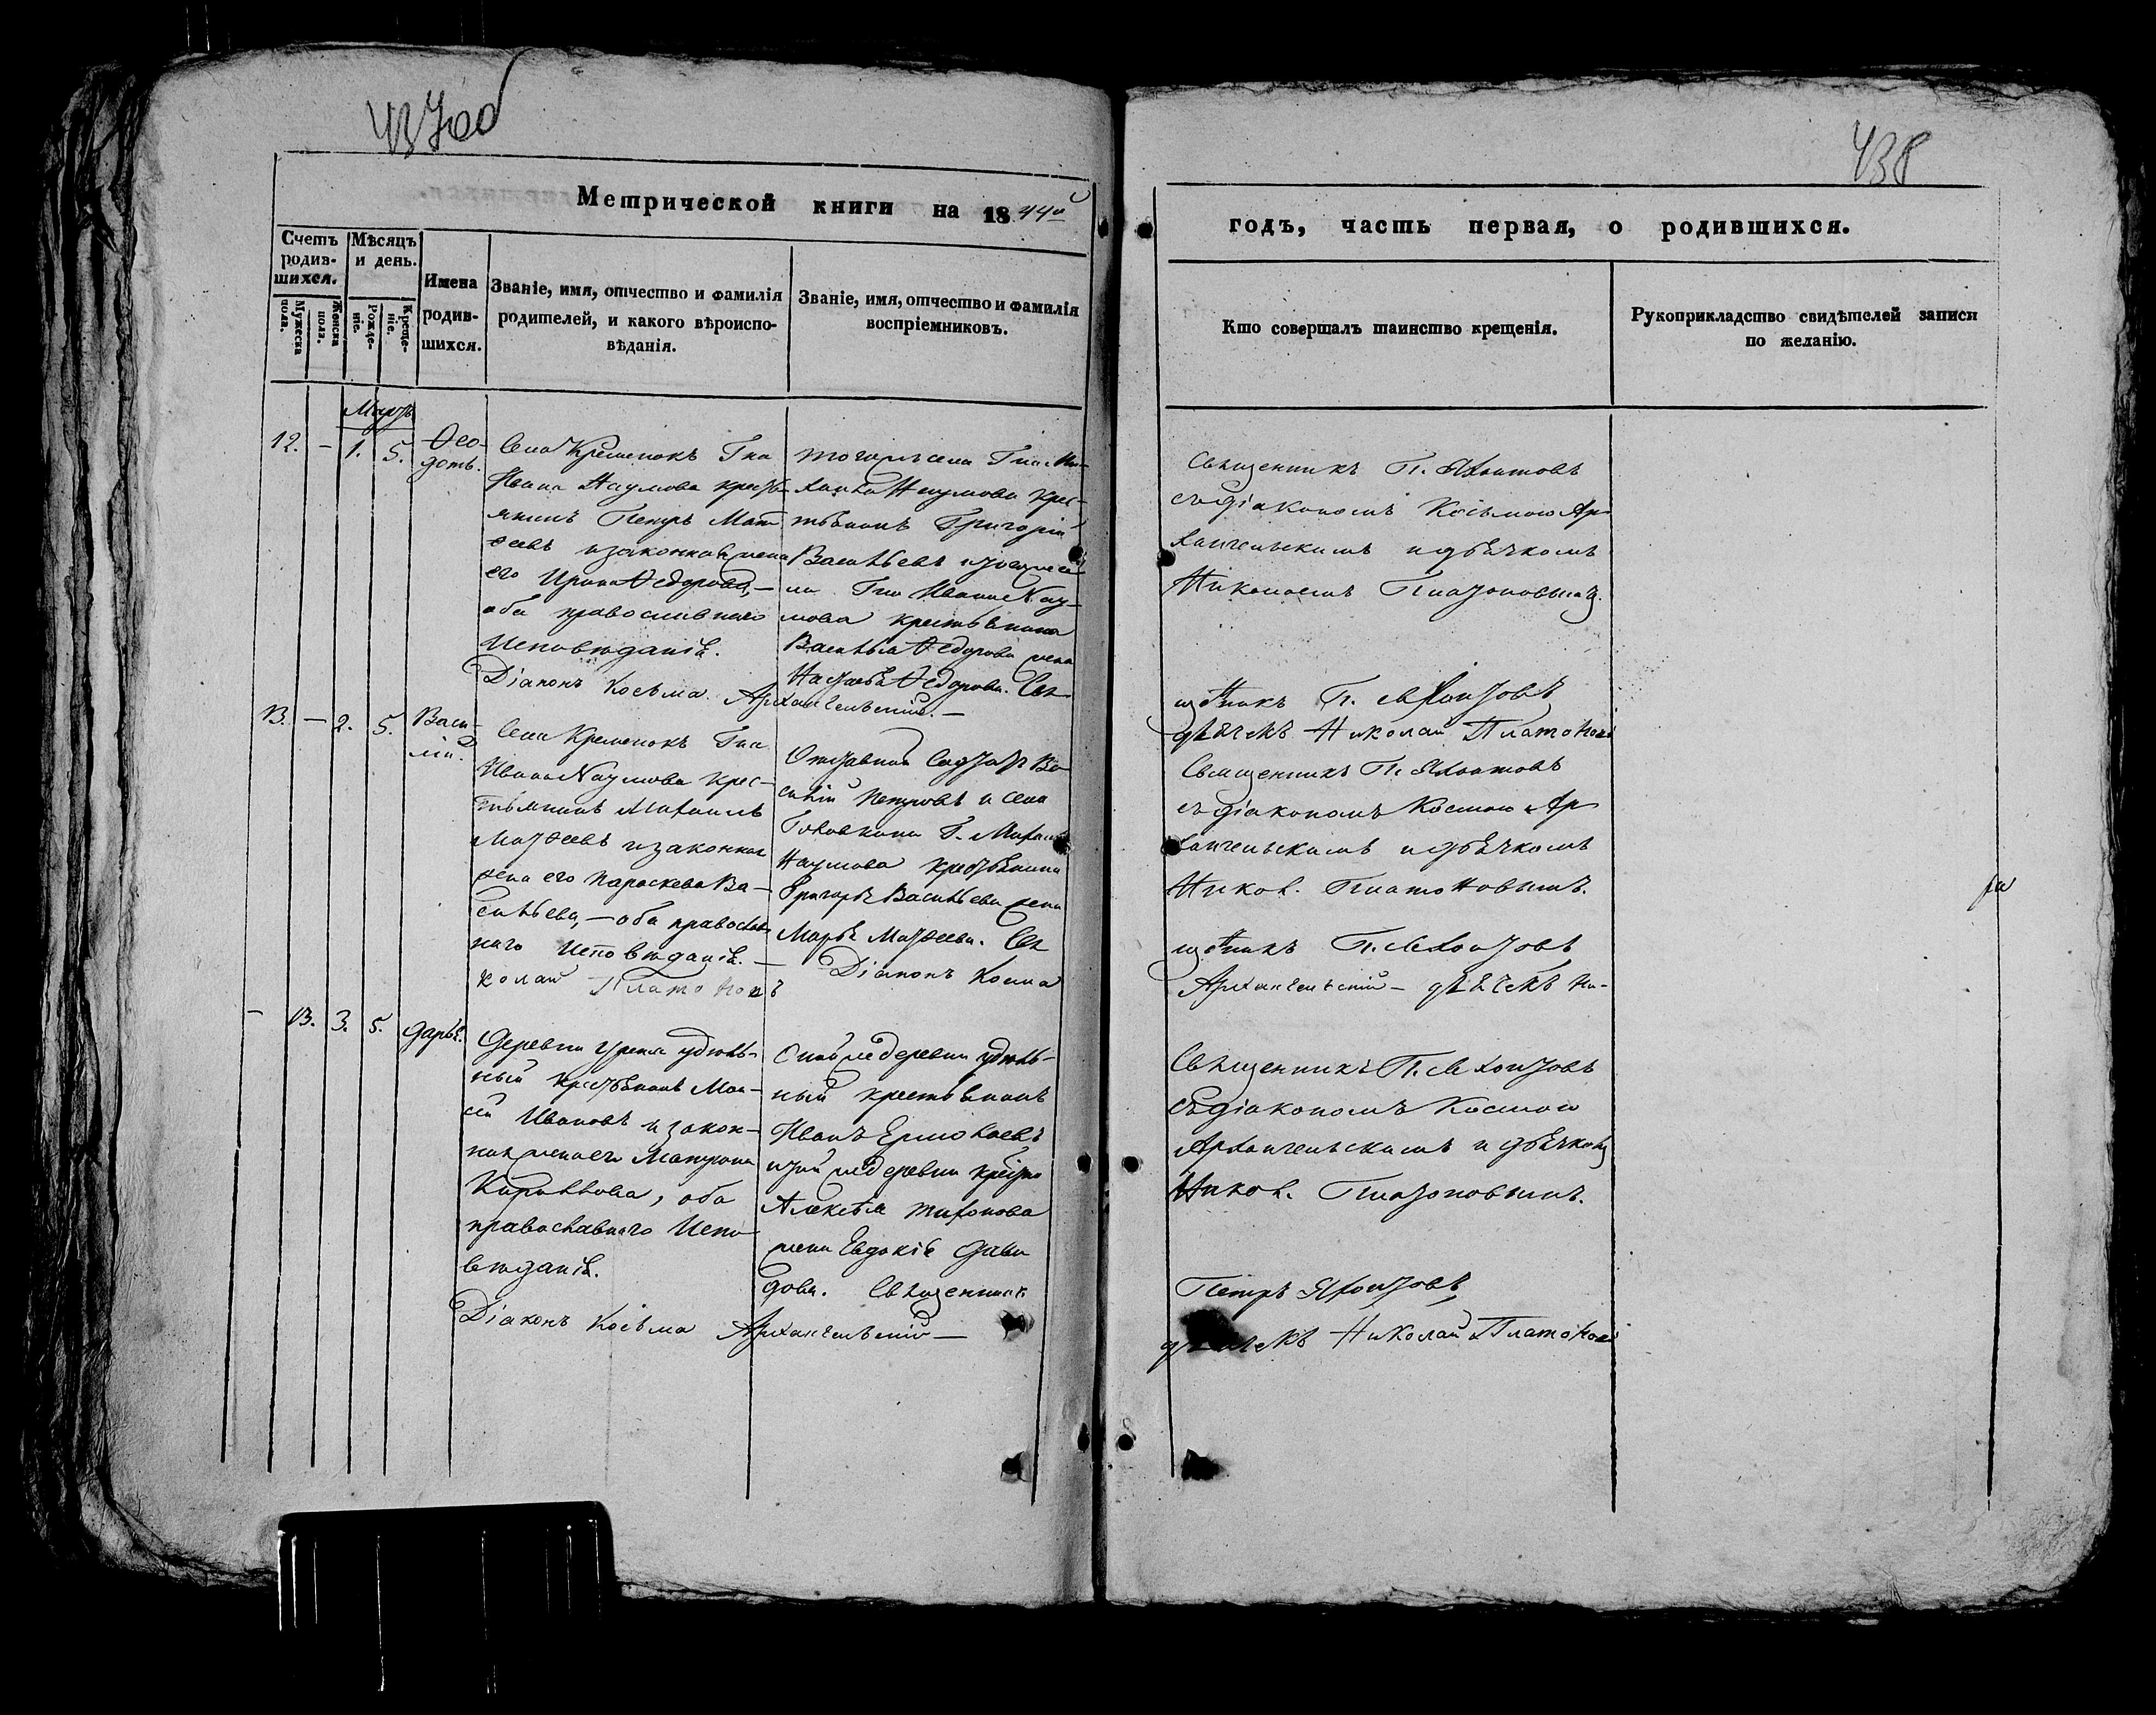 437об
438
Метрической книги на 1844й
годъ, часть первая, о родившихся.
Счетъ родив-шихся.
Мѣсяцъ и день.
Мужеска пола.
Женска пола.
Рожде-ніе.
Креще-ніе.
Имена родив-шихся.
Званіе, имя, отчество и фамилія
родителей, и какого вѣроиспо-
вѣданія.
Званіе, имя, отчество и фамилія
воспріемниковъ.
Кто совершалъ таинство крещенія.
Рукоприкладство свидѣтелей записи
по желанію.
Мартъ
12. – 1. 5. Ѳео-
дотъ.
Села Кременокъ Гна
Ивана Наумова кресть-
янинъ Петръ Мат
ѳеевъ и законная жена
его Ирина Ѳедорова, –
оба православнаго
Исповѣданія.
тогожъ села Гна Ми-
хаила Наумова крес-
тьянинъ Григорій
Васильевъ и тогоже се
ла Гна Ивана Нау-
мова крестьянина
Василья Ѳедорова жена
Настасья Ѳедорова. Свя
Священникъ П. Яхонтовъ
съ діакономъ Косьмою Ар
хангельскимъ и дьячкомъ
Николаемъ Платоновымъ.
щенникъ П. Яхонтовъ
Діаконъ Косьма Архангельскій. –
дьячекъ Николай Платоновъ
13. – 2. 5. Васи-
лій.
Села Кременокъ Гна
Ивана Наумова крес-
тьянинъ Михаилъ
Матѳеевъ и законная
жена его Параскева Ва-
сильева, – оба православ
наго Исповѣданія. –
Отставной Солдатъ Ва
силій Петровъ и села
Головкина Г. Михаила
Наумова крестьянина
Григорья Васильева жена
Марья Матѳеева. Свя
Священникъ П. Яхонтовъ
съ діакономъ Космою Ар
хангельскимъ и дьячкомъ
Никол. Платоновымъ.
щенникъ П. Яхонтовъ
Діаконъ Косма
Архангельскій – дьячекъ Ни-
колай Платоновъ
– 13. 3. 5. Дарья.
Деревни удѣль-
ный крестьянинъ Мои-
сей Ивановъ и закон-
ная жена его Матрона
Кирилова, оба
православнаго Испо-
вѣданія.
Оной же деревни удѣль-
ный крестьянинъ
Иванъ Ермолаевъ
и той же деревни крестна
Алексѣя Тихонова
жена Евдокія Дави
дова. Священникъ
Священникъ П. Яхонтовъ
съ діакономъ Космою
Архангельскимъ и дьячкомъ
Никол. Платоновымъ.
Петръ Яхонтовъ
Діаконъ Косьма Архангельскій –
дьячекъ Николай Платоновъ